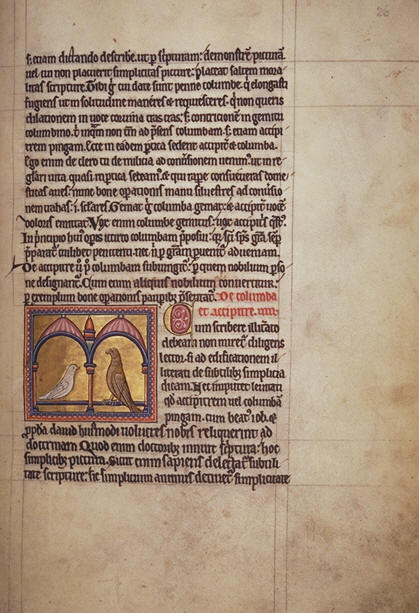 s; etiam dictando describe. ut p̱ sc̄pturam: demonstrē picturā
uel cui non placuerit simplicitas picture: placeat saltem mora
litas scripture. Tibi ḡ cui date sunt penne columbe. q̄ elongasti
fugiens ut in solitudine maneres ⁊ requiesceres. q̄ non queris
dilationem in uoce coruina cras cras. s; contricionem in gemitu
columbino. t̄ inquā non tm̄ ad p̄sens columbam. s; etiam accipi
trem pingam. Ecce in eadem ptica sedent accipit̄ ⁊ columba.
Ego enim de clero tu de milicia ad conūsionem uenim᷒ ut in re
glari uita quasi in ptica sedeam᷒. ⁊ qui rape consueueras dome
sticas aues: nunc bone opationis manu siluestres ad conūsio
nem trahas. i. sclares. Gemat ḡ columba gemat ⁊ accipit̄ uocē
doloris emittat. Vox enim columbe gemitus. uox accipit̄s q̄st᷒.
In principio hui᷒ opis iccirco columbam p̄posui. q̄ sc̄i sp̄s grā semp
p̄paratur cuilibet penitenti. nec n̄ p grām puenit᷒ ad ueniam.
De accipitre ū p᷒ columbam subiungit᷒. p quem nobilium pso
ne designant᷒. Cum enim aliquis nobilium conuertitur.
p exemplum bone opationis paupib; p̄sentat᷒. De columba
et accipitre
Cum scribere illit̄ato
debeam non miret᷒ diligens
lector. si ad edificationem il
literati de subtilib; simplicia
dicam. Nec imputet leuitati
qd accipitrem uel columbā
pingam. cum beat᷒ iob. ⁊
ppha dauid hui᷒modi uolucres nobis reliquerint ad
doctrinam. Quod enim doctorib; innuit sc̄ptura: hoc
simplicib; pictura. Sicut enim sapiens delectat᷒ subtili
tate scripture: sic simplicium animus detinet᷒ simplicitate